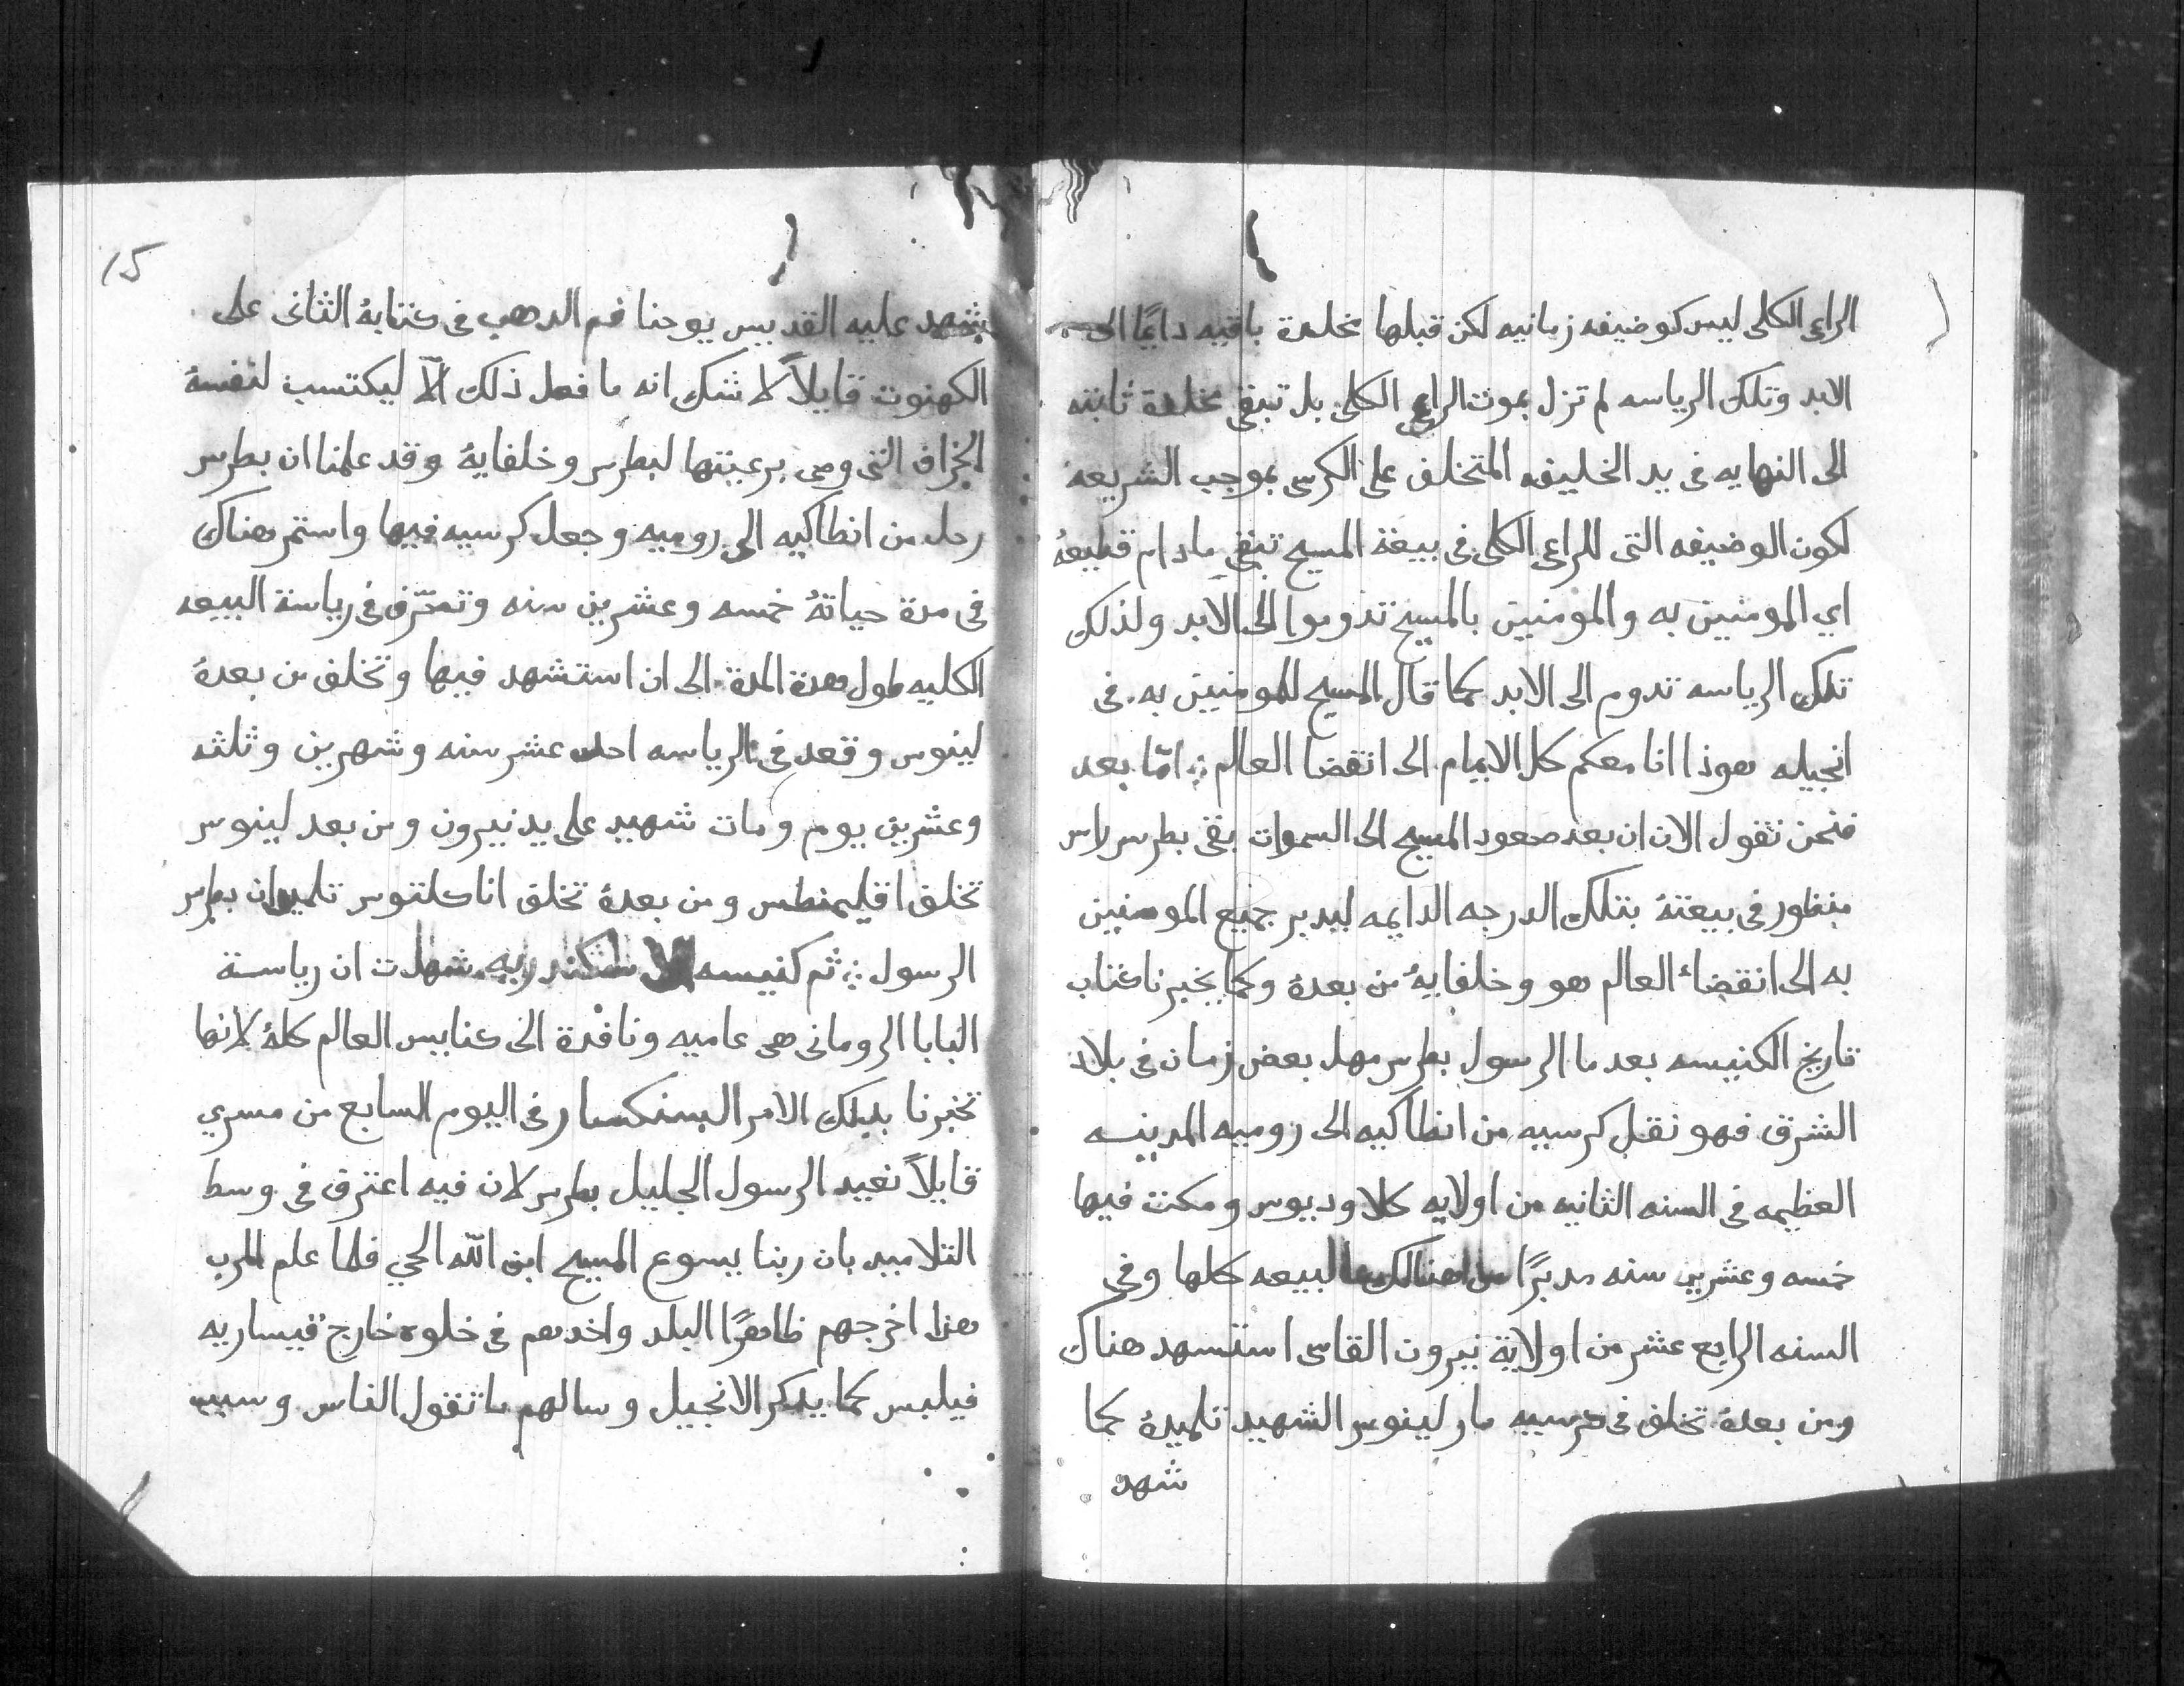 الراعى الكلى ليس كوضيفه زمانيه لكن قبلها مخلدة باقيه دايمًا الى
الابد وتلك الرياسه لم تزل بموت الراعي الكلى بل تبقى مخلدة ثابته
الى النهايه فى يد الخليفه المتخلف على الكرسى بموجب الشريعه
لكون الوضيفه التى للراعى الكلى فى بيعة المسيح تبقى مادام قطيعهُ
اي المومنين به والمومنين بالمسيح تدوموا الى الابد ولذلك
تلك الرياسه تدوم الى الابد كما قال المسيح للمومنين به فى
انجيله هوذا انا معكم كل الايام الى انقضا العالم ⁘ امّا بعد
فنحن نقول الان ان بعد صعود المسيح الى السموات بقى بطرس راس
منظور فى بيعتهُ بتلك الدرجه الدايمه ليدبر جميع المومنين
به الى انقضاء العالم هو وخلفايهُ من بعدهُ وكما يخبرنا كتاب
تاريخ الكنيسه بعد ما الرسول بطرس مهل بعض زمان فى بلاد
الشرق فهو نقل كرسيه من انطاكيه الى روميه المدينه
العظيمه فى السنه الثانيه من اولايه كلاوديوس ومكث فيها
خمسه وعشرين سنه مدبرًا من هنالك البيعه كلها وفى
السنه الرابع عشر من اولاية نيرون القاسى استسهد هناك
ومن بعدهُ تخلف فى كرسيه مار لينوس الشهيد تلميدهُ كما
شهد
15
يشهد عليه القديس يوحنا فم الدهب فى كتابهُ الثانى على
الكهنوت قايلاً لا شك انه ما فعل ذلك الّا ليكتسب لنفسهُ
الخراف التى وصى برعيتها لبطرس وخلفايهُ وقد علمنا ان بطرس
رحل من انطاكيه الى روميه وجعل كرسيه فيها واستمر هناك
فى مدة حياتهُ خمسه وعشرين سنه وتصّرف فى رياسة البيعه
الكليه طول هدة المدة الى ان استشهد فيها وتخلف من بعدهُ
لينوس وقعد فى الرياسه احد عشر سنه وشهرين وثلثه
وعشرين يوم ومات شهيد على يد نيرون ومن بعد لينوس
تخلف اقليمنطس ومن بعدهُ تخلف اناكلتوس تلميدان بطرس
الرسول ⁘ ثم كنيسه الاسكندريه شهدت ان رياسة
البابا الرومانى هى عاميه ونافدة الى كنايس العالم كلهُ لانها
تخبرنا بدلك الامر السنكسار فى اليوم السابع من مسري
قايلاً نعيد الرسول الجليل بطرس لان فيه اعترف فى وسط
التلاميد بان ربنا يسوع المسيح ابن الله الحي فلما علم الرب
هدا اخرجهم ظاهرًا البلد واخدهم فى خلوه خارج قيساريه
فيلبس كما يدكر الانجيل وسالهم ما تقول الناس وسبب